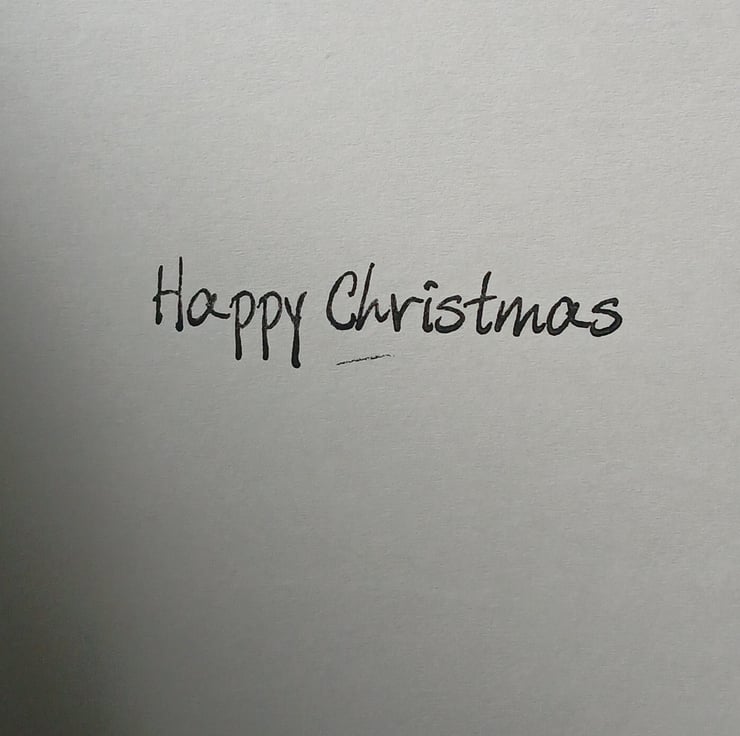 Happy Christmas